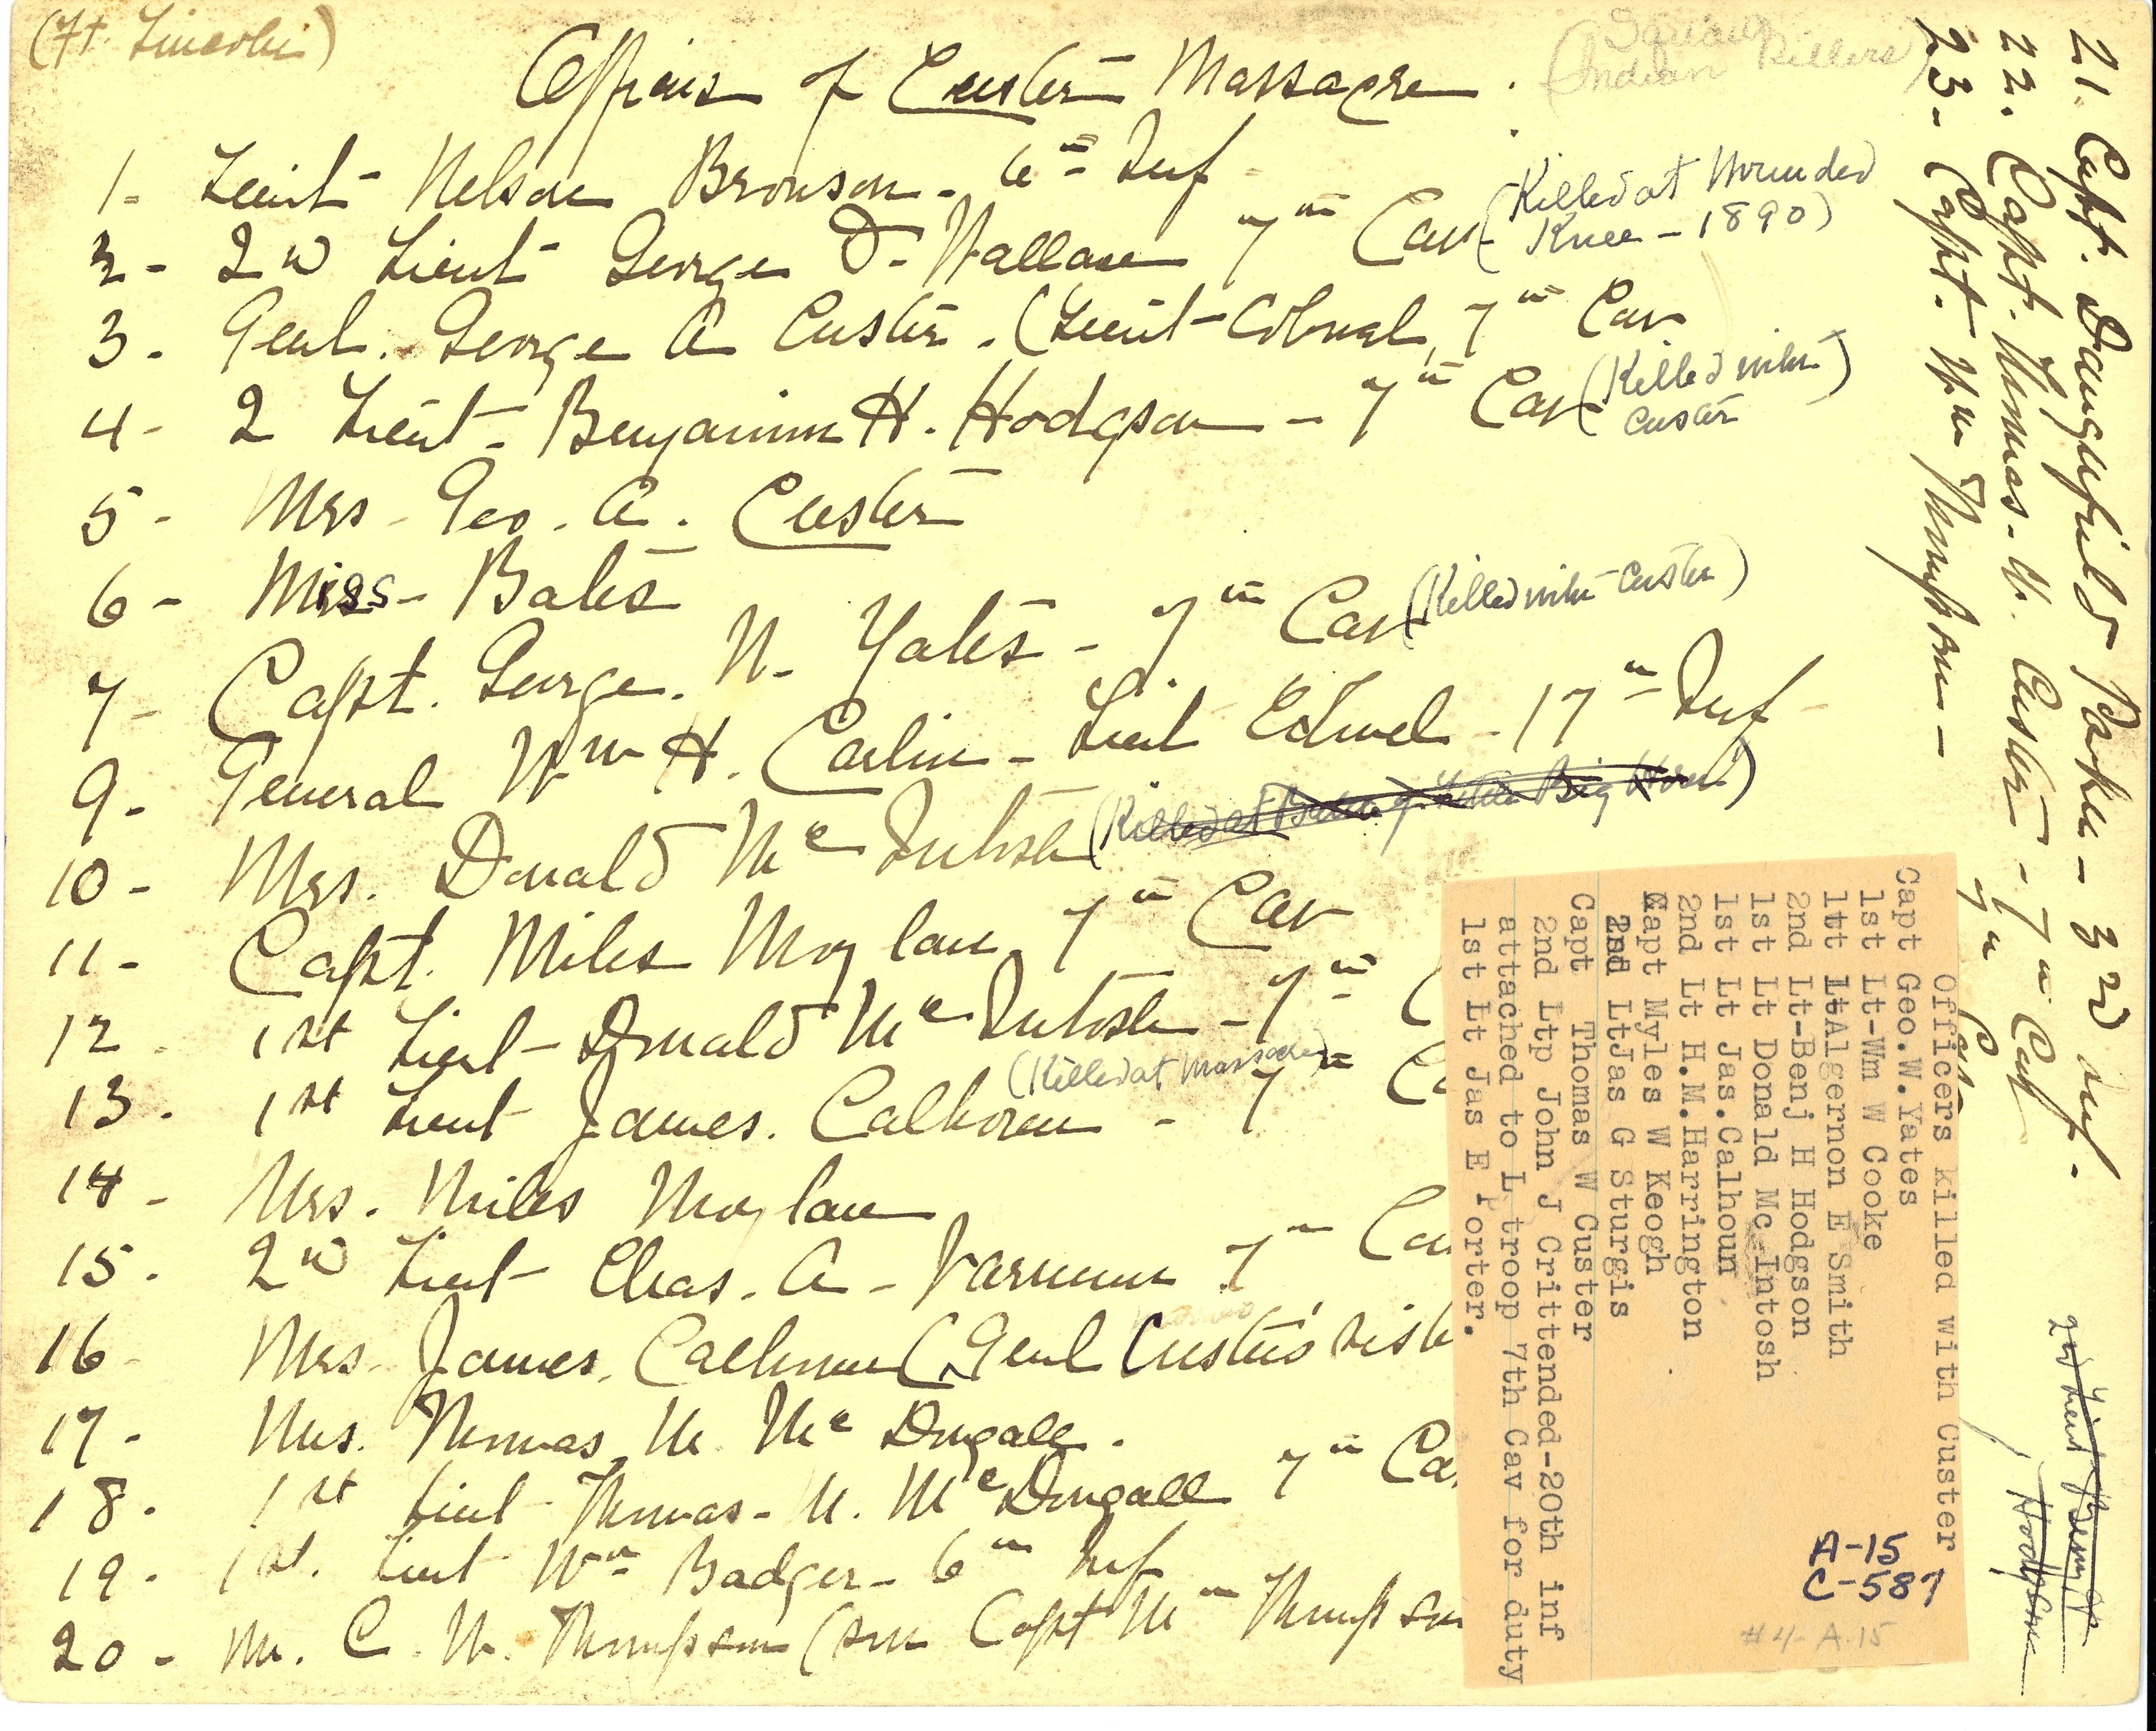 (Ft. Lincoln)
Officers of Custer Massacre.
Indian Killers)
1- Lieut- Nelson Bronson- 6th Inf-
2- 2nd Lieut- George D- Wallace 7th Cav- (Killed at Wounded
Knee-1890)
3- Genl. George A Custer. (Lieut-Colonel, 7th Cav.
4- 2 Lieut- Benjamin H. Hodgson- 7th Cav (Killed with
Custer)
5- Mrs- Geo. A. Custer
6- Miss- Bates
7- Capt. George. W. Yates- 7th Cav (Killed with Custer)
9- General Wm H. Carlin- Lieut Colonel- 17th Inf-
10- Mrs. Donald Mc Intosh (Killed at Battle of Little Big Horn)
11- Capt. Miles Moylan 7th Cav
12. 1st Lieut- Donald Mc Intosh- 7th C
(Killed at Massacre)
13. 1st Lieut James. Calhoun- 7th Ca
14- Mrs. Miles Moylan
15. 2nd Lieut- Chas. A- Varnum 7th Cav
16- Mrs. James. Calhoun (Genl Custer's sist
17- Mrs. Thomas. M. Mc Dougall.
18. 1st Lieut- Thomas- M. McDougall 7th Cav
19. 1st. Lieut Wm Badger- 6th Inf
20- Mr. C. W. Thompson (son Capt Wm Thompson
21. Capt. Daingerfield Parker- 3rd Inf.
22. Capt. Thomas- W. Custer- 7th Cav
23- Capt. Wm Thompson- 7th Cav
2nd Lieut Benj H
Hodgson
Officers killed with Custer
Capt Geo.W.Yates
1st Lt-Wm W Cooke
1tt LtAlgernon E Smith
2nd Lt-Benj H Hodgson
1st Lt Donald Mc Intosh
1st Lt Jas.Calhoun
2nd Lt H.M.Harrington
Capt Myles W Keogh
2nd LtJas G Sturgis
Capt Thomas W Custer
2nd Ltp John J Crittended-20th inf
attached to L troop 7th Cav for duty
1st Lt Jas E Porter.
A-15
C-587
#4-A.15